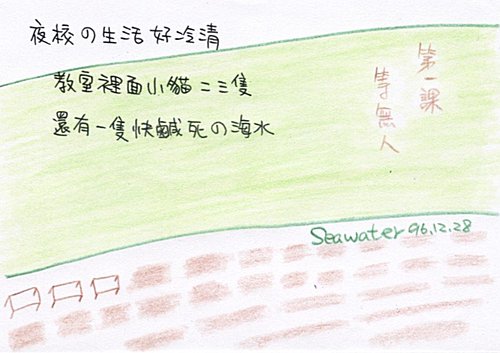 夜校の生活好冷清
教室裡面小貓二三隻
還有一隻快鹹死の海水
第一課
等無人
Seawater 96.12.28